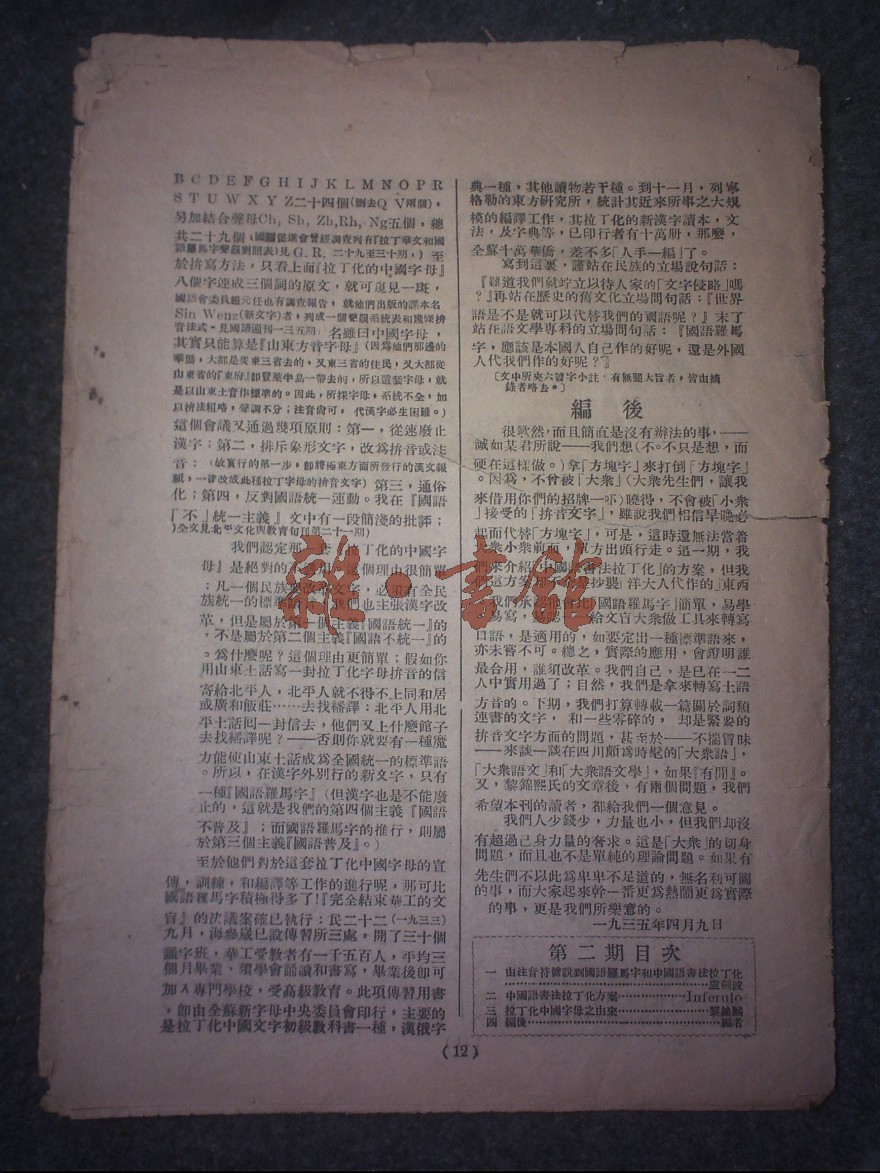 B C D E F G H I J K L M N O P R
S T U W X Y Z二十四個(刪去Q V兩個)，
另加結合聲母Ch, Sh, Zh, Rh, Ng五個，總
共二十九個(國語促進會曾經調查列有『拉丁華文和國
語羅馬字聲韻對照表』見G. R. 二十九至三十期，) 至
於拼寫方法，只看上面『拉丁化的中國字母』
八個字連成三個詞的原文，就可窺見一斑，
國語會委員趙元任也有調查報告，就他們出版的課本名
Sin Wenz(新文字)者，列成一個聲韻系統表和幾條拼
音法式・見國語週刊一三五期) 名雖曰中國字母，
其實只能算是『山東方音字母』(因爲他們那邊的
華僑，大都是從東三省去的，又東三省的住民，又大都從
山東省的『東府』卽登萊半島一帶去的，所以這套字母，就
是以山東土音作標準的。因此，所採字母，系統不全，加
以拼法粗略，聲調不分；注音尙可，代漢字必生困難。)
這個會議又通過幾項原則：第一，從速廢止
漢字；第二，排斥象形文字，改爲拼音或注
音：(故實行的第一步，卽將極東方面所發行的漢文報
紙，一律改成此種拉丁字母的拼音文字) 第三，通俗
化；第四，反對國語統一運動。我在『國語
「不」統一主義』文中有一段簡淺的批評；
)全文見北平文化與教育旬刊第二十一期)
我們認定那一套『拉丁化的中國字
母』是絕對的 這個理由很簡單
：凡一個民族要改 文字，必須有全民
族統一的標 我們也主張漢字改
革，但是屬於第一個主義『國語統一』的
，不是屬於第二個主義『國語不統一』的
。爲什麼呢？這個理由更簡單；假如你
用山東土話寫一封拉丁化字母拼音的信
寄給北平人，北平人就不得不上同和居
或廣和飯莊……去找繙譯：北平人用北
平土話囘一封信去，他們又上什麼館子
去找繙譯呢？——否則你就要有一種魔
力能使山東土話成爲全國統一的標準語
。所以，在漢字外別行的新文字，只有
一種『國語羅馬字』(但漢字也是不能廢
止的，這就是我們的第四個主義『國語
不普及』；而國語羅馬字的推行，則屬
於第三個主義『國語普及』。)
至於他們對於這套拉丁化中國字母的宣
傳，訓練，和編譯等工作的進行呢，那可比
國語羅馬字積極得多了！『完全結束華工的文
盲』的決議案確已執行：民二十二(一九三三)
九月，海參崴已設傳習所三處，開了三十個
識字班，華工受教者有一千五百人，平均三
個月畢業、須學會誦讀和書寫，畢業後卽可
加入專門學校，受高級教育。此項傳習用書
，卽由全蘇新字母中央委員會印行，主要的
是拉丁化中國文字初級教科書一種，漢俄字
典一種，其他讀物若干種。到十一月，列寧
格勒的東方研究所，統計其近來所事之大規
模的編譯工作，其拉丁化的新漢字讀本，文
法，及字典等，已印行者有十萬册，那麼，
全蘇十萬華僑，差不多「人手一編」了。
寫到這裏，謹站在民族的立場說句話：
『難道我們就竚立以待人家的「文字侵略」嗎
？』再站在歷史的舊文化立場問句話：『世界
語是不是就可以代替我們的國語呢？』末了
站在語文學專科的立場問句話：『國語羅馬
字，應該是本國人自己作的好呢，還是外國
人代我們作的好呢？』
〔文中所夾六號字小註，有無關大旨者，皆由摘
錄者略去。〕
編 後
很歉然，而且簡直是沒有辦法的事，——
誠如某君所說——我們想（不。不只是想，而
硬在這樣做。）拿「方塊字」來打倒「方塊字」
。因爲，不曾被「大衆」（大衆先生們，讓我
來借用你們的招牌一吓）曉得，不會被「小衆」
接受的「拼音文字」，雖說我們相信早晚必
起而代替「方塊字」，可是，這時還無法當着
大衆小衆前面，單方出頭行走。這一期，我
們來介紹「中國語書法拉丁化」的方案，但我
們這方案却不全是抄襲「洋大人代作的」東西
我們承認他會比「國語羅馬字」簡單，易學
易寫， 給文盲大衆做工具來轉寫
口語，是適用的，如要定出一種標準語來，
亦未嘗不可。總之，實際的應用，會證明誰
最合用，誰須改革。我們自己，是已在一二
人中實用過了；自然，我們是拿來轉寫土語
方音的。下期，我們打算轉載一篇關於詞類
連書的文字， 和一些零碎的， 却是緊要的
拼音文字方面的問題，甚至於——不揣冒昧
——來談一談在四川頗爲時髦的「大衆語」，
「大衆語文」和「大衆語文學」，如果『有閒』。
又，黎錦熙氏的文章後，有兩個問題，我們
希望本刊的讀者，都給我們一個意見。
我們人少錢少，力量也小，但我們却沒
有超過己身力量的奢求。這是「大衆」的切身
問題，而且也不是單純的理論問題。如果有
先生們不以此爲卑卑不足道的，無名利可圖
的事，而大家起來幹一番更爲熱鬧更爲實際
的事，更是我們所樂意的。
一九三五年四月九日
第二期目次
一 由注音符號說到國語羅馬字和中國語書法拉丁化
………盧劍波
二 中國語書法拉丁化方案………Inferulo
三 拉丁化中國字母之由來………黎錦熙
四 編後………編者
(12)
雜・書館